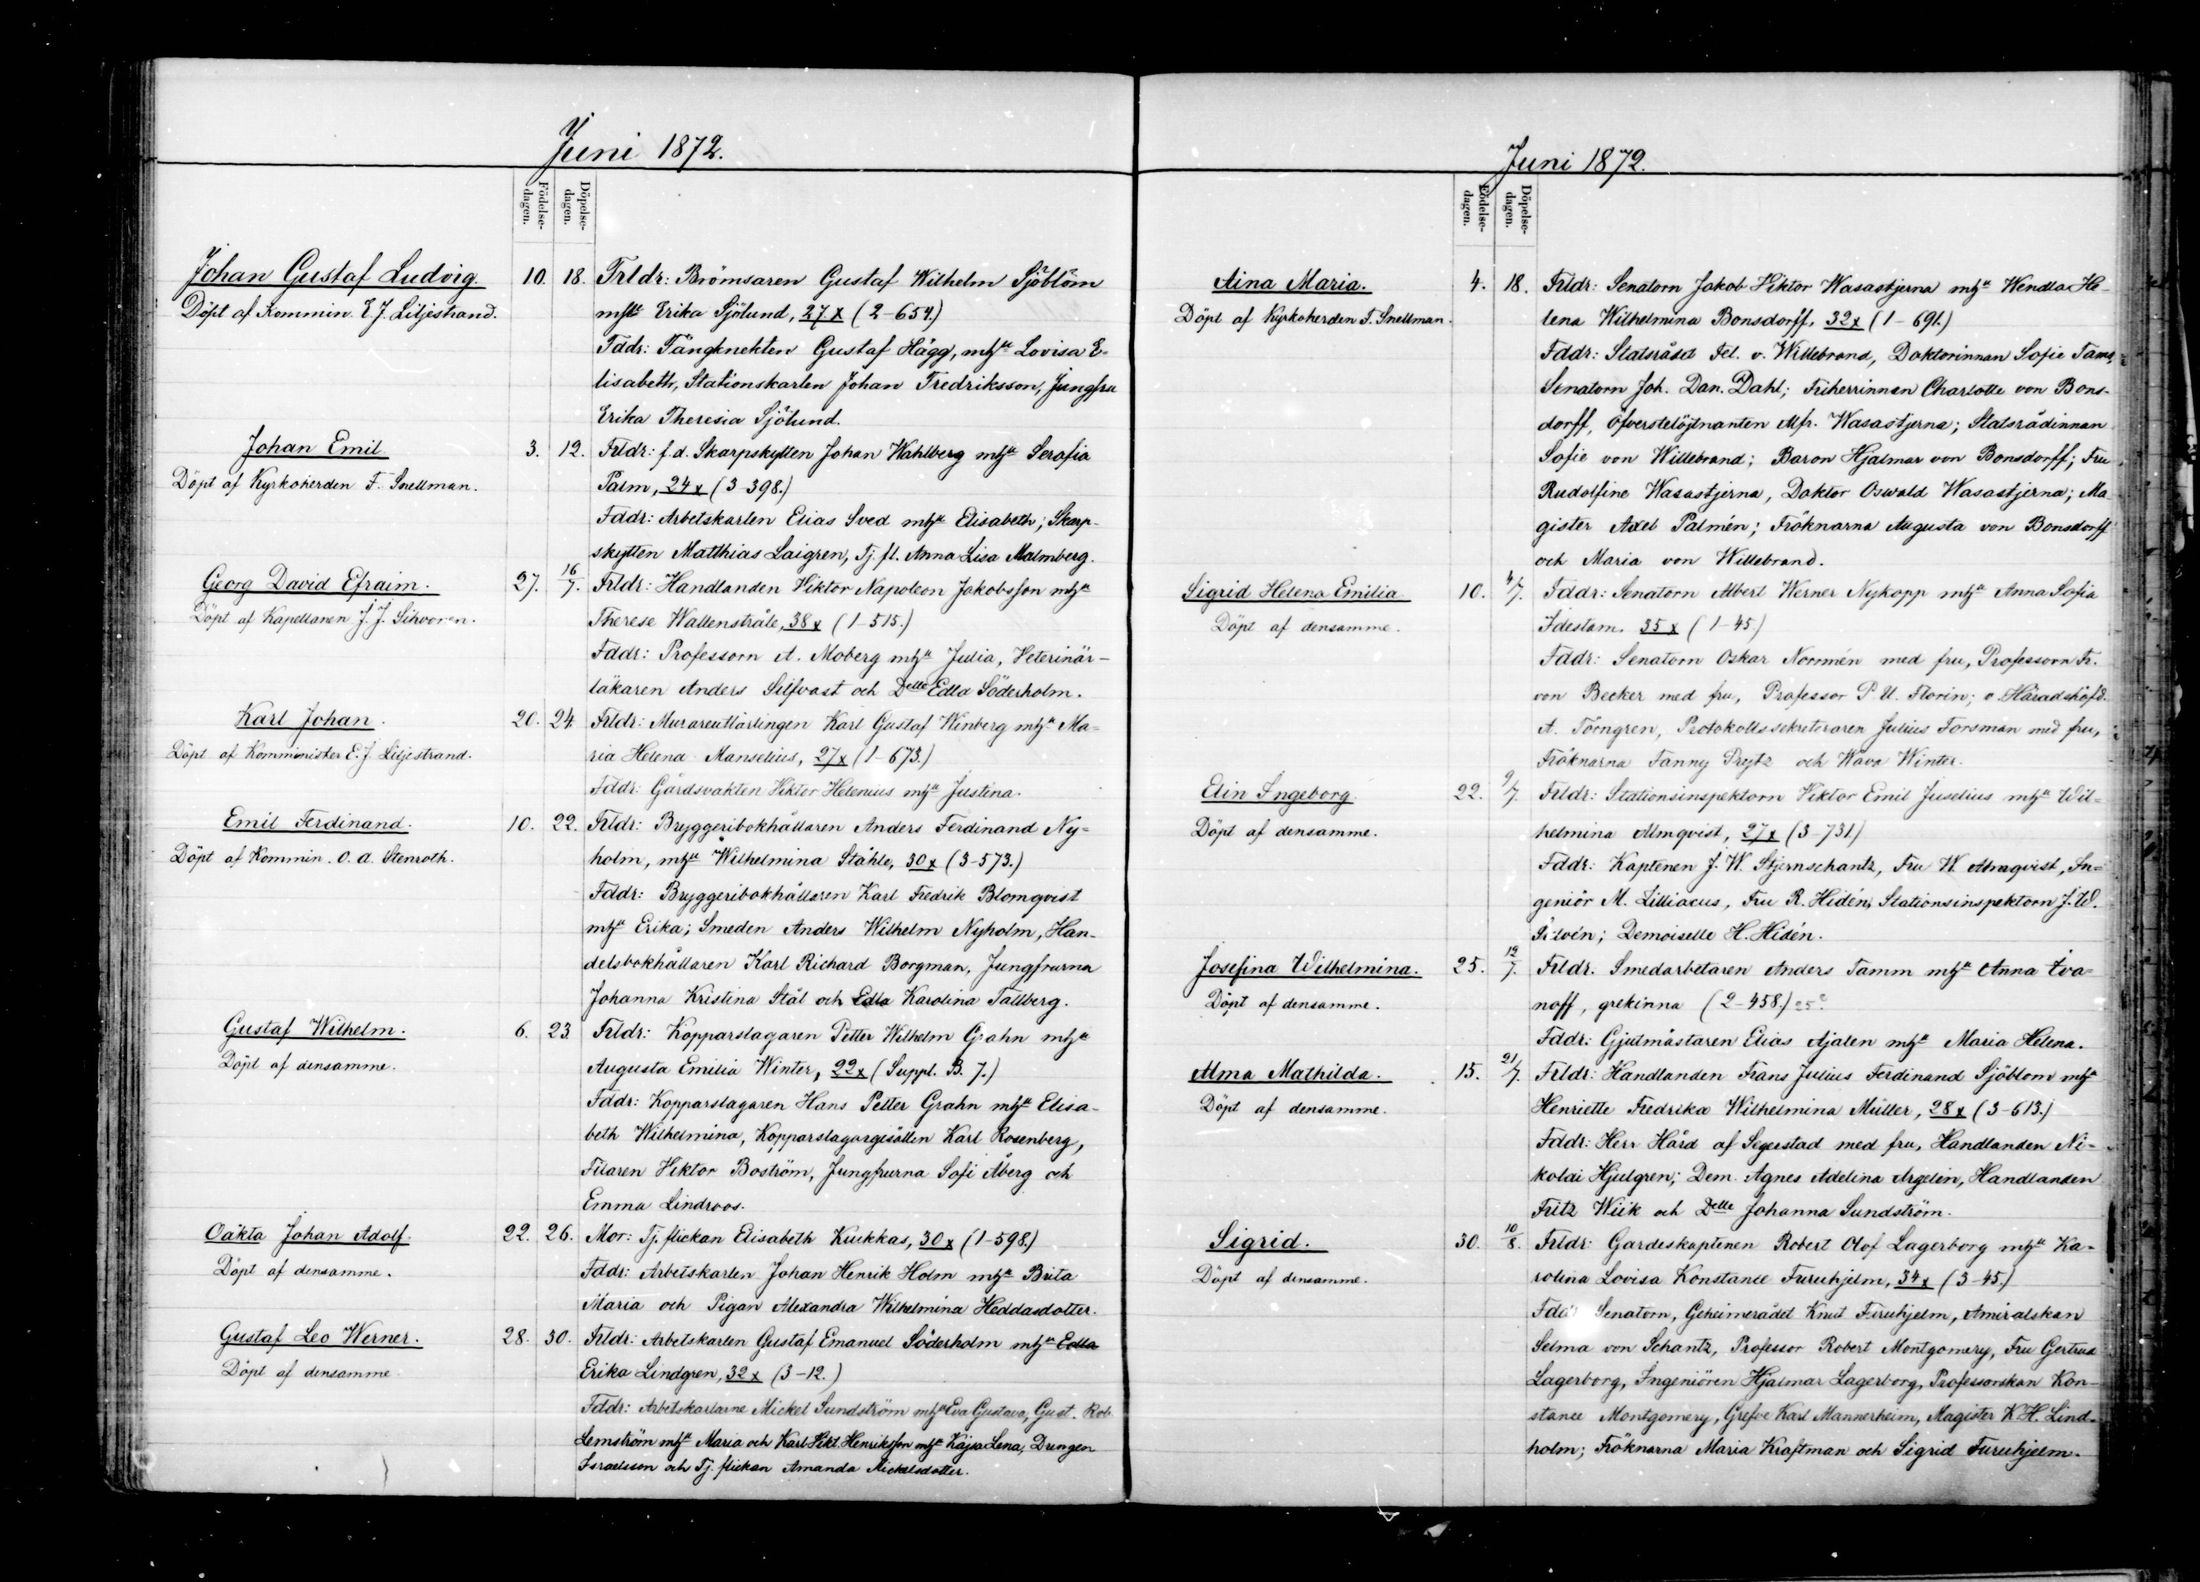 Juni 1872.
Födelse-
dagen.
Döpelse-
dagen.
Johan Gustaf Ludvig. 10. 18. Frldr: Brömsaren Gustaf Wilhelm Sjöblöm
Döpt af Kommin. E. J. Liljestrand. mhu Erika Sjölund, 27 x (2-654.)
Fddr: Tångknekten Gustaf Hägg, mhu Lovisa E-
lisabeth, Stationskarlen Johan Fredriksson, Jungfru
Erika Theresia Sjölund.
Johan Emil 3. 12. Frldr: f.d. Skarpskytten Johan Wahlberg mhu Serafia
Döpt af Kyrkoherden F. Snellman. Palm, 24 x (3-398.)
Fddr: Arbetskarlen Elias Sved mhu Elisabeth; Skarp-
skytten Matthias Laigren, Tj. fl. Anna Lisa Malmberg.
Georg David Efraim. 27. 16/7. Frldr: Handlanden Viktor Napoleon Jakobsson mhu
Döpt af Kapellanen J. J. Sihvonen. Therese Wallenstråle, 38 x (1-515.)
Fddr: Professorn A. Moberg mhu Julia, Veterinär-
läkaren Anders Silfvast och Delle Edla Söderholm.
Karl Johan. 20. 24. Frldr: Murareutlärlingen Karl Gustaf Winberg mhu Ma-
Döpt af Komminister E. J. Liljestrand. ria Helena Manselius, 27 x (1-673.)
Fddr: Gårdsvakten Viktor Helenius mhu Justina.
Emil Ferdinand. 10. 22. Frldr: Bryggeribokhållaren Anders Ferdinand Ny-
Döpt af Kommin. O. A. Stenroth. holm, mhu Wilhelmina Ståhle, 30 x (3-573.)
Fddr: Bryggeribokhållaren Karl Fredrik Blomqvist
mhu Erika; Smeden Anders Wilhelm Nyholm, Han-
delsbokhållaren Karl Richard Borgman, Jungfrurna
Johanna Kristina Stål och Edla Karolina Tallberg.
Gustaf Wilhelm. 6. 23 Frldr: Kopparslagaren Petter Wilhelm Grahn mhu
Döpt af densamme. Augusta Emilia Winter, 22 x (Suppl. B. 7.)
Fddr: Kopparslagaren Hans Petter Grahn mhu Elisa-
beth Wilhelmina, Kopparslagargesällen Karl Rosenberg,
Filaren Viktor Boström, Jungfrurna Sofi Åberg och
Emma Lindroos.
Oäkta Johan Adolf. 22. 26. Mor: Tj. flickan Elisabeth Kiukkas, 30 x (1-598.)
Döpt af densamme. Fddr: Arbetskarlen Johan Henrik Holm mhu Brita
Maria och Pigan Alexandra Wilhelmina Heddasdotter.
Gustaf Leo Werner. 28. 30. Frldr: Arbetskarlen Gustaf Emanuel Söderholm mhu Edla
Döpt af densamme. Erika Lindgren, 32 x (3-12.)
Fddr: Arbetskarlarne Mickel Sundström mhu Eva Gustava, Gust. Rob.
Lemström mhu Maria och Karl Vikt. Henriksson mhu Kajsa Lena, Drengen
Israelsson och Tj. flickan Amanda Mickelsdotter.
Juni 1872.
Födelse-
dagen.
Döpelse-
dagen.
Aina Maria. 4. 18. Frldr: Senatorn Jakob Viktor Wasastjerna mhu Wendla He-
Döpt af Kyrkoherden F. Snellman. lena Wilhelmina Bonsdorff, 32 x (1-691.)
Fddr: Statsrådet Fel. v. Willebrand, Doktorinnan Sofie Tams,
Senatorn Joh. Dan. Dahl; Friherrinnan Charlotte von Bons-
dorff, Öfverstelöjtnanten Alfr. Wasastjerna; Statsrådinnan
Sofie von Willebrand; Baron Hjalmar von Bonsdorff; Fru
Rudolfine Wasastjerna, Doktor Oswald Wasastjerna; Ma-
gister Axel Palmén; Fröknarna Augusta von Bonsdorff
och Maria von Willebrand.
Sigrid Helena Emilia 10. 4/7. Fddr: Senatorn Albert Werner Nykopp mhu Anna Sofia
Döpt af densamme. Idestam. 35 x (1-45.)
Fddr: Senatorn Oskar Norrmén med fru, Professorn Fr.
von Becker med fru, Professor P. U. Florin; v. Häradshöfd.
A. Törngren, Protokollssekreteraren Julius Forsman med fru,
Fröknarna Fanny Prytz och Wava Winter.
Elin Ingeborg. 22. 9/7. Frldr: Stationsinspektorn Viktor Emil Juselius mhu Wil-
Döpt af densamme. helmina Almqvist, 27 x (3-731.)
Fddr: Kaptenen J. W. Stjernschantz, Fru W. Almqvist, In-
geniör M. Lilliacus, Fru R. Hidén, Stationsinspektorn J. W.
Silvén; Demoiselle H. Hidén.
Josefina Wilhelmina. 25. 12/7. Frldr. Smedarbetaren Anders Tamm mhu Anna Iva-
Döpt af densamme. noff, grekinna (2-458.) 25
Fddr: Gjutmästaren Elias Ajalen mhu Maria Helena.
Alma Mathilda. 15. 21/7. Frldr: Handlanden Frans Julius Ferdinand Sjöblom mhu
Döpt af densamme. Henriette Fredrika Wilhelmina Müller, 28 x (3-613.)
Fddr: Herr Hård af Segerstad med fru, Handlanden Ni-
kolai Hjulgren; Dem. Agnes Adelina Argelin, Handlanden
Fritz Wiik och Delle Johanna Sundström.
Sigrid. 30. 10/8. Frldr: Gardeskaptenen Robert Olof Lagerborg mhu Ka-
Döpt af densamme. rolina Lovisa Konstance Furuhjelm, 34 x (3-45.)
Fdd Senatorn, Geheimerådet Knut Furuhjelm, Amiralskan
Selma von Schantz, Professor Robert Montgomery, Fru Gertrud
Lagerborg, Ingeniören Hjalmar Lagerborg, Professorskan Kon-
stance Montgomery, Grefve Karl Mannerheim, Magister K. H. Lind-
holm; Fröknarna Maria Kraftman och Sigrid Furuhjelm.